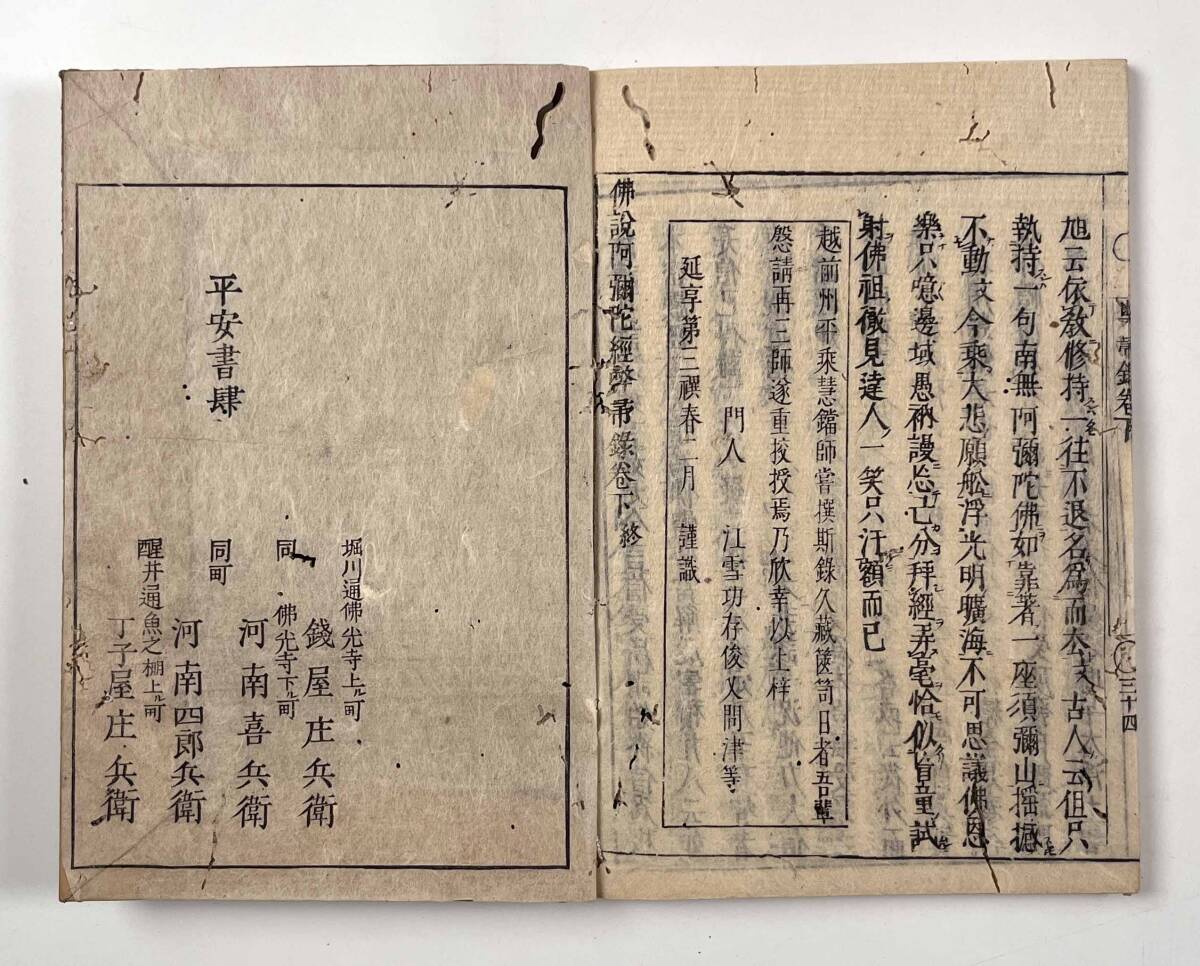 旭云依敎修持一往不退名爲而去文古人云但只
執持一句南無阿彌陀佛如靠著一座須彌山搖撼
不動文今乘大悲願舩浮光明曠海不可思議佛恩
樂只噫邊域愚衲謾忘己分拜經弄毫恰似盲童試
射佛祖徹見達人一笑只汗額而已
越前州平乘慧鐺師嘗撰斯錄久藏篋笥日者吾輩
慇請再三師遂重挍授焉乃欣幸以上梓
門人 江雪功存俊乂問津等
延享第三禩春二月 謹識
佛說阿彌陀經
錄卷下終
錄卷下
三十四
平安書肆
堀川通佛光寺上ル町
錢屋庄兵衛
同 佛光寺下ル町
河南喜兵衛
同町
河南四郎兵衛
醒井通魚之棚上ル町
丁子屋庄兵衛